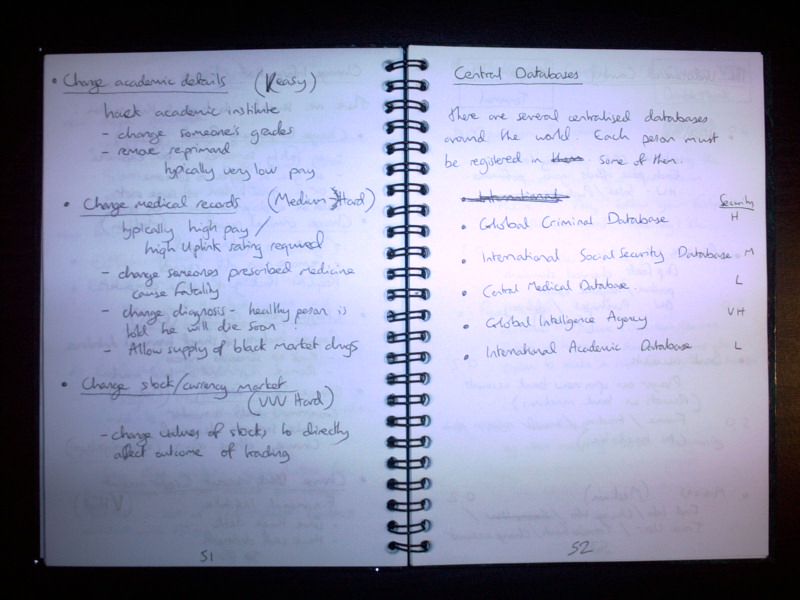 • Change academic details (Easy)
hack academic institute
- change someone's grades
- remove reprimand
typically very low pay
• Change medical records (Medium → Hard)
typically high pay /
high Uplink rating required
- change someones prescribed medicine
cause fatality
- change diagnosis - healthy person is
told he will die soon.
- Allow supply of black market drugs
• Change stock/currency market
(VVV Hard)
- change values of stocks to directly
affect outcome of trading
51
Central Databases
there are several centralised databases
around the world. Each person must
be registered in them. some of them.
• International
Security
• Global Criminal Database H
• International Social Security Database M
• Central Medical Database. L
• Global Intelligence Agency VH
• International Academic Database L
52